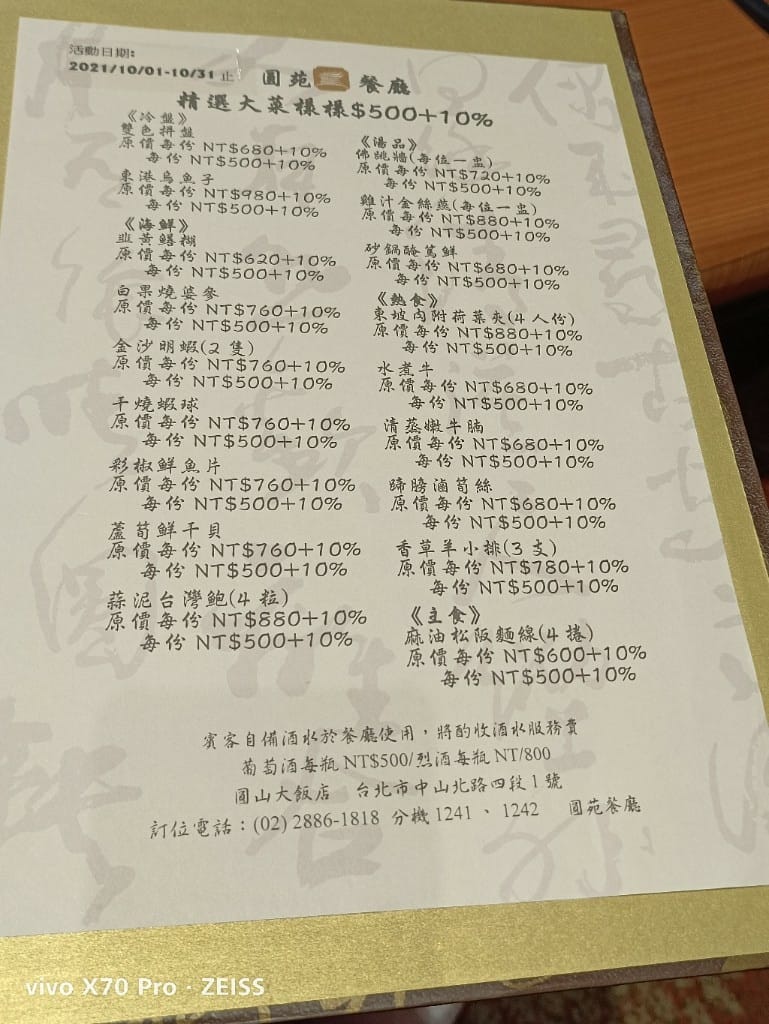 活動日期:
2021/10/01-10/31 止
圓苑 餐廳
精選大菜樣樣$500+10%
《冷盤》
雙色拼盤
原價每份 NT$680+10%
每份 NT$500+10%
東港烏魚子
原價每份 NT$980+10%
每份 NT$500+10%
《海鮮》
韭黃鱔糊
原價每份 NT$620+10%
每份 NT$500+10%
白果燒婆參
原價每份 NT$760+10%
每份 NT$500+10%
金沙明蝦(2 隻)
原價每份 NT$760+10%
每份 NT$500+10%
干燒蝦球
原價每份 NT$760+10%
每份 NT$500+10%
彩椒鮮魚片
原價每份 NT$760+10%
每份 NT$500+10%
蘆筍鮮干貝
原價每份 NT$760+10%
每份 NT$500+10%
蒜泥台灣鮑(4 粒)
原價每份 NT$880+10%
每份 NT$500+10%
《湯品》
佛跳牆(每位一盅)
原價每份 NT$720+10%
每份 NT$500+10%
雞汁金絲燕(每位一盅)
原價每份 NT$880+10%
每份 NT$500+10%
砂鍋醃篤鮮
原價每份 NT$680+10%
每份 NT$500+10%
《熱食》
東坡肉附荷葉夾(4 人份)
原價每份 NT$880+10%
每份 NT$500+10%
水煮牛
原價每份 NT$680+10%
每份 NT$500+10%
清蒸嫩牛腩
原價每份 NT$680+10%
每份 NT$500+10%
蹄膀滷筍絲
原價每份 NT$680+10%
每份 NT$500+10%
香草羊小排(3 支)
原價每份 NT$780+10%
每份 NT$500+10%
《主食》
麻油松阪麵線(4 捲)
原價每份 NT$600+10%
每份 NT$500+10%
賓客自備酒水於餐廳使用，將酌收酒水服務費
葡萄酒每瓶 NT$500/烈酒每瓶 NT/800
圓山大飯店 台北市中山北路四段 1 號
訂位電話：(02) 2886-1818 分機 1241 、 1242 圓苑餐廳
vivo X70 Pro · ZEISS